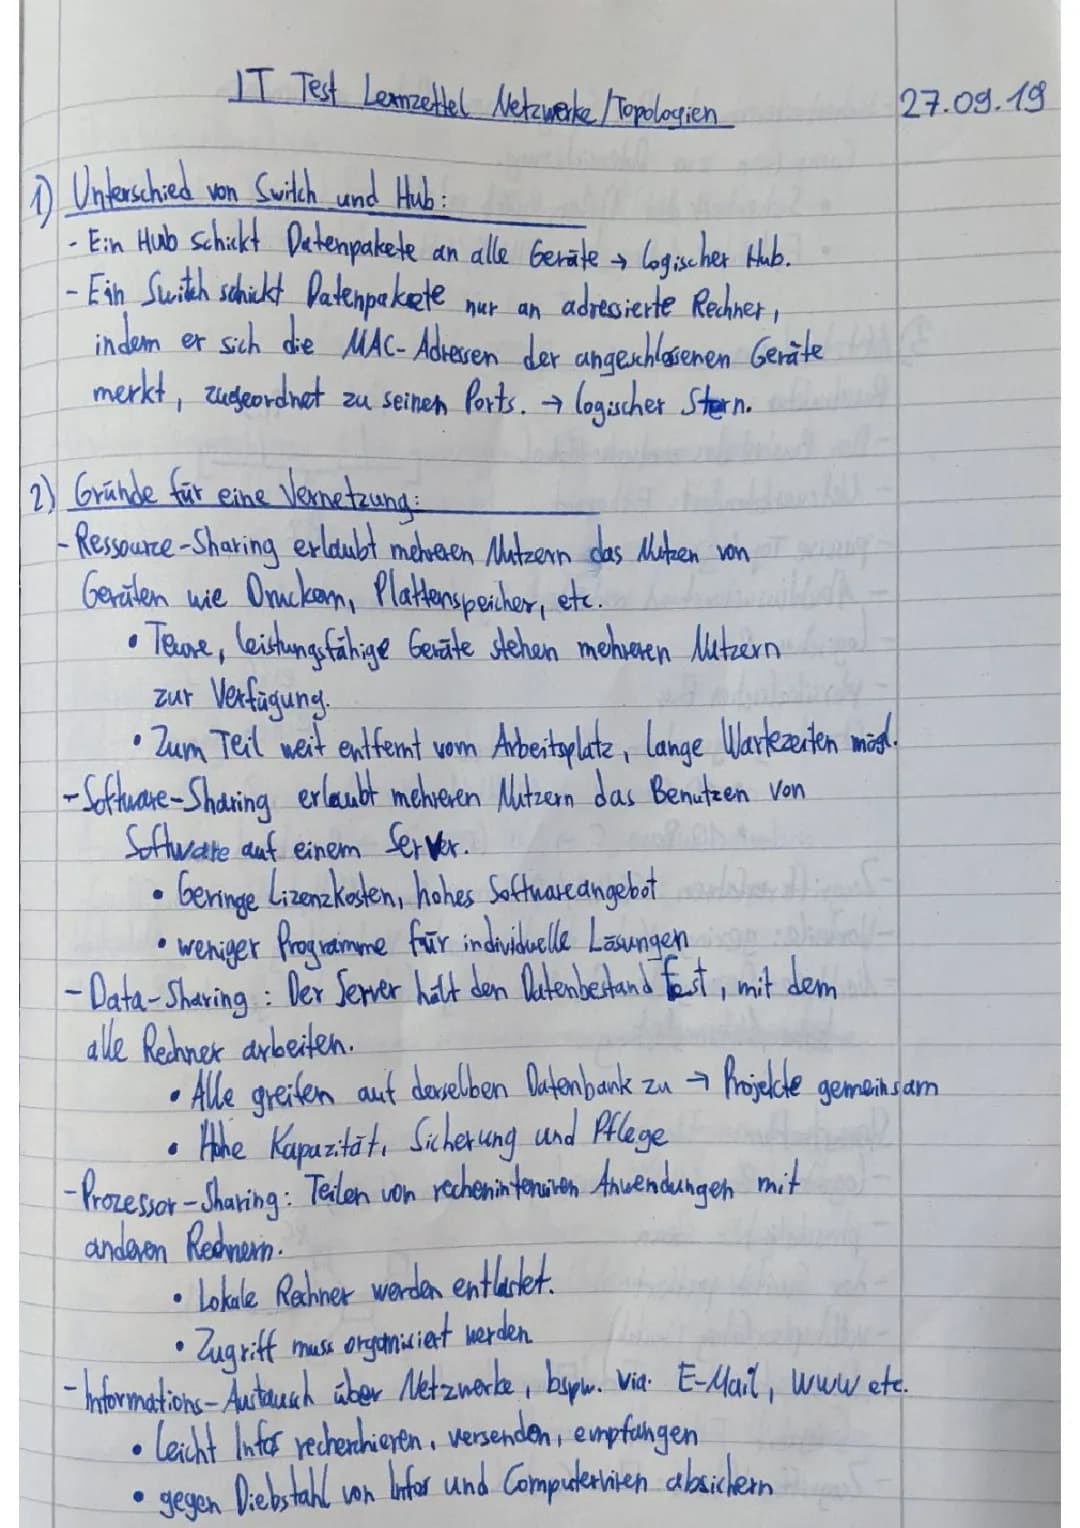 IT Test Lernzettel Netzwerke/Topologien 27.09.19
1) Unterschied von Switch und Hub:
- Ein Hub schickt Datenpakete an alle Geräte → logischer Hub.
- Ein Switch schickt Datenpakete nur an adressierte Rechner,
indem er sich die MAC-Adressen der angeschlossenen Geräte
merkt, zugeordnet zu seinen Ports. → logischer Stern.
2) Gründe für eine Vernetzung:
- Ressource-Sharing erlaubt mehreren Nutzern das Nutzen von
Geräten wie Druckern, Plattenspeicher, etc.
• Teure, leistungsfähige Geräte stehen mehreren Nutzern
zur Verfügung.
• Zum Teil weit entfernt vom Arbeitsplatz, lange Wartezeiten mögl.
- Software-Sharing erlaubt mehreren Nutzern das Benutzen von
Software auf einem Server.
• Geringe Lizenzkosten, hohes Softwareangebot
• weniger Programme für individuelle Lösungen
- Data-Sharing: Der Server hält den Datenbestand fest, mit dem
alle Rechner arbeiten.
• Alle greifen auf derselben Datenbank zu → Projekte gemeinsam
• Hohe Kapazität, Sicherung und Pflege
- Prozessor-Sharing: Teilen von rechenintensiven Anwendungen mit
anderen Rechnern.
• Lokale Rechner werden entlastet.
• Zugriff muss organisiert werden
- Informations-Austausch über Netzwerke, bspw. via. E-Mail, www etc.
• Leicht Infos recherchieren, versenden, empfangen
• gegen Diebstahl von Infos und Computerviren absichern